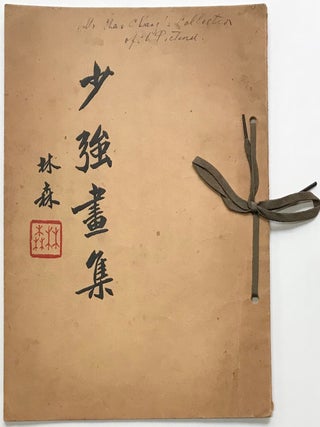 Mr. Shao Chang's Collection
of Pictures.
少強畫集
林森